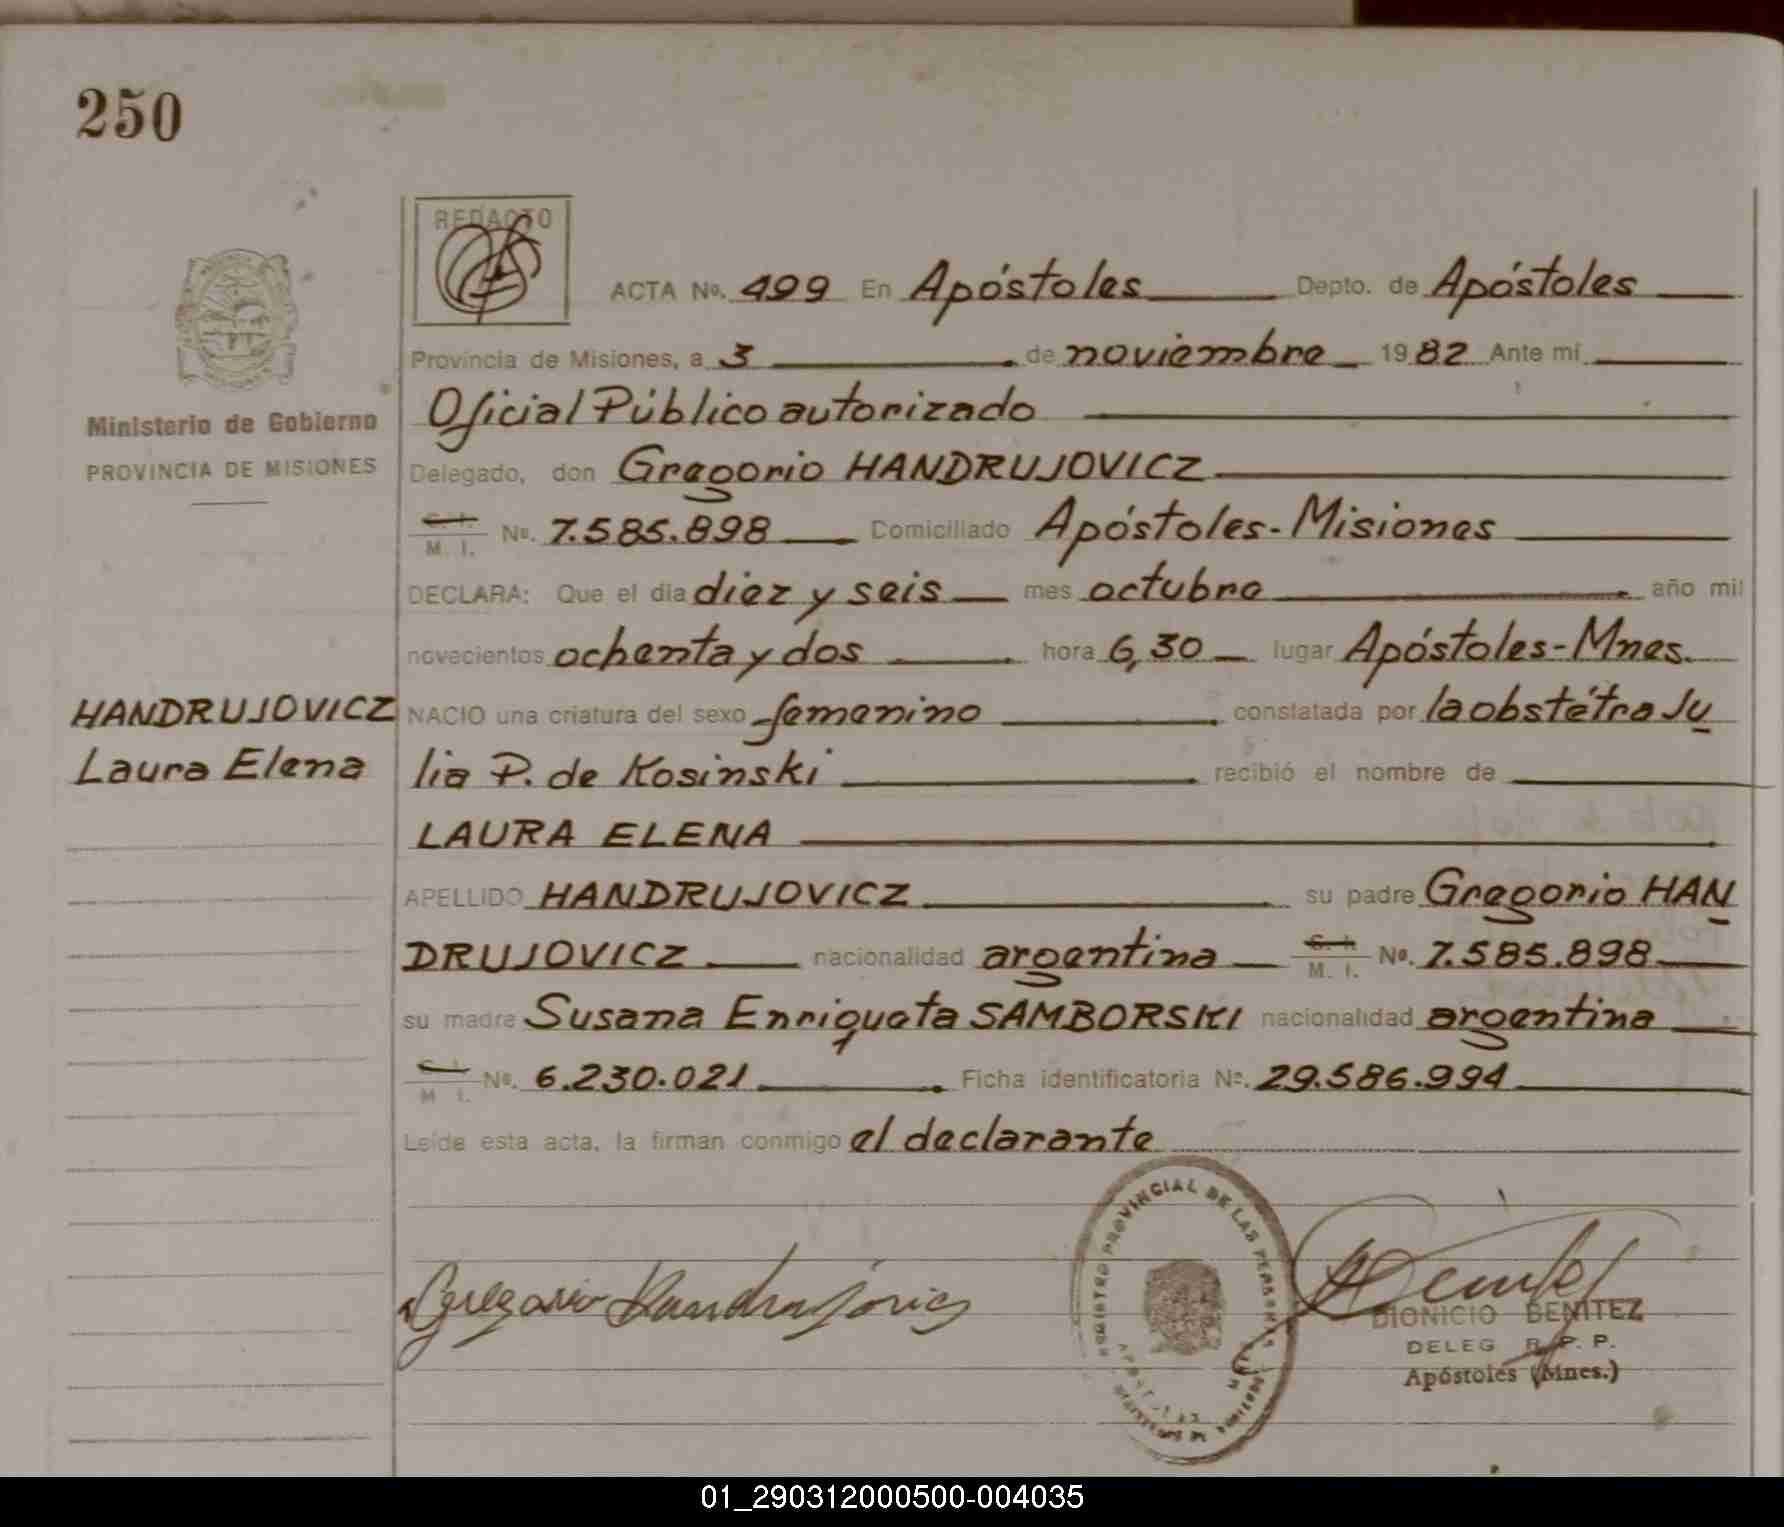 250
REDACTO
ACTA Nº. 499 En Apóstoles Depto. de Apóstoles
Provincia de Misiones, a 3 de noviembre 1982 Ante mí
Oficial Público autorizado
Ministerio de Gobierno
PROVINCIA DE MISIONES
Delegado, don Gregorio HANDRUJOVICZ
C. I.
M. I. Nº. 7.585.898 Domiciliado Apóstoles-Misiones
DECLARA: Que el dia diez y seis mes octubre año mil
novecientos ochenta y dos hora 6,30 lugar Apóstoles-Mnes.
HANDRUJOVICZ
Laura Elena
NACIO una criatura del sexo femenino constatada por la obstétra Ju
lia P. de Kosinski recibió el nombre de
LAURA ELENA
APELLIDO HANDRUJOVICZ su padre Gregorio HAN
DRUJOVICZ nacionalidad argentina C. I. M. I. Nº. 7.585.898
su madre Susana Enriqueta SAMBORSKI nacionalidad argentina
C. I.
M. I. Nº. 6.230.021 Ficha identificatoria Nº. 29.586.994
Leída esta acta, la firman conmigo el declarante
Gregorio Handrujovicz
REGISTRO PROVINCIAL DE LAS PERSONAS
DIONICIO BENITEZ
DELEG R. P. P.
Apóstoles (Mnes.)
01_290312000500-004035